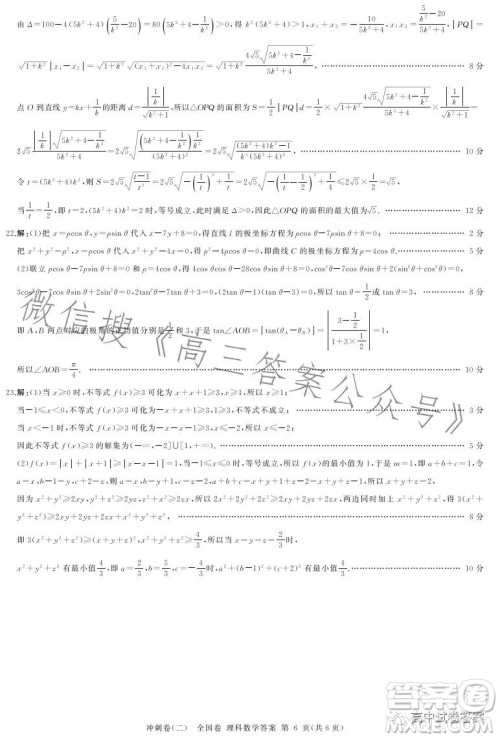 由 Δ=100-4(5k²+4)(5/k²-20)=80(5k²+4-1/k²)>0，得 k²(5k²+4)>1，x₁+x₂=-10/(5k²+4)，x₁x₂=(5/k²-20)/(5k²+4)，|PQ|=
√(1+k²)|x₁-x₂|=√(1+k²)√((x₁+x₂)²-4x₁x₂)=√(1+k²)×4√5√(5k²+4-1/k²)/(5k²+4)， 8分
点 O 到直线 y=kx+1/k 的距离 d=|1/k|/√(k²+1)，所以△OPQ 的面积为 S=1/2|PQ|d=1/2×√(1+k²)×4√5√(5k²+4-1/k²)/(5k²+4)×|1/k|/√(k²+1)=
2√5|1/k|√(5k²+4-1/k²)/(5k²+4)=2√5√((5k²+4-1/k²)/(k²(5k²+4)²))=2√5√(((5k²+4)k²-1)/(k⁴(5k²+4)²))， 10分
令 t=(5k²+4)k²，则 S=2√5√((t-1)/t²)=2√5√(-(1/t)²+1/t)=2√5√(-(1/t-1/2)²+1/4)≤2√5×1/2=√5.
当 1/t=1/2，即 t=2，(5k²+4)k²=2 时，等号成立，此时满足 Δ>0，因此△OPQ 的面积的最大值为√5. 12分
22.解：(1)把 x=ρcos θ，y=ρsin θ 代入 x-7y+8=0，得直线 l 的极坐标方程为 ρcos θ-7ρsin θ+8=0； 2分
把 x²+y²=ρ²，x=ρcos θ 代入 x²+y²-4x=0，得 ρ²-4ρcos θ=0，即曲线 C 的极坐标方程为 ρ-4cos θ. 5分
(2)联立 ρcos θ-7ρsin θ+8=0 和 ρ=4cos θ，得 4cos²θ-28cos θsin θ+8=0，cos²θ-7cos θsin θ+2(sin²θ+cos²θ)=0，
3cos²θ-7cos θsin θ+2sin²θ=0，2tan²θ-7tan θ+3=0，(2tan θ-1)(tan θ-3)=0，所以 tan θ=1/2 或 tan θ=3， 8分
即 A，B 两点对应的极角的正切值分别是 1/2 和 3，于是 tan∠AOB=|tan(θA-θB)|=|(3-1/2)/(1+3×1/2)|=1，
所以∠AOB=π/4. 10分
23.解：(1)当 x≥0 时，不等式 f(x)≥3 可化为 x+x+1≥3，所以 x≥1；
当-1≤x<0，不等式 f(x)≥3 可化为-x+x+1≥3，不等式不成立； 3分
当 x<-1 时，不等式 f(x)≥3 可化为-x-x-1≥3，所以 x≤-2；
因此不等式 f(x)≥3 的解集为(-∞，-2]∪[1，+∞). 5分
(2)f(x)=|x|+|x+1|≥|x-x-1|=1，当-1≤x≤0 时等号成立，所以 f(x)的最小值为 1，于是 m=1，即 a+b+c=1，令
a=x，b-1=y，c+2=z，则 a=x，b=y+1，c=z-2，a+b+c=x+y+1+z-2=1，x+y+z=2，
因为 x²+y²≥2xy，y²+z²≥2yz，x²+z²≥2xz，所以 2x²+2y²+2z²≥2xy+2yz+2xz，两边同时加上 x²+y²+z²，得 3(x²+
y²+z²)≥x²+y²+z²+2xy+2yz+2xz，
即 3(x²+y²+z²)≥(x+y+z)²，x²+y²+z²≥4/3，所以当 x=y=z=2/3 时，
x²+y²+z² 有最小值 4/3，即 a=2/3，b=5/3，c=-4/3 时，a²+(b-1)²+(c+2)² 有最小值 4/3. 10分
微信搜《高三答案公众号》
冲刺卷(二) 全国卷 理科数学答案 第 6 页(共 6 页)
高中试卷答案